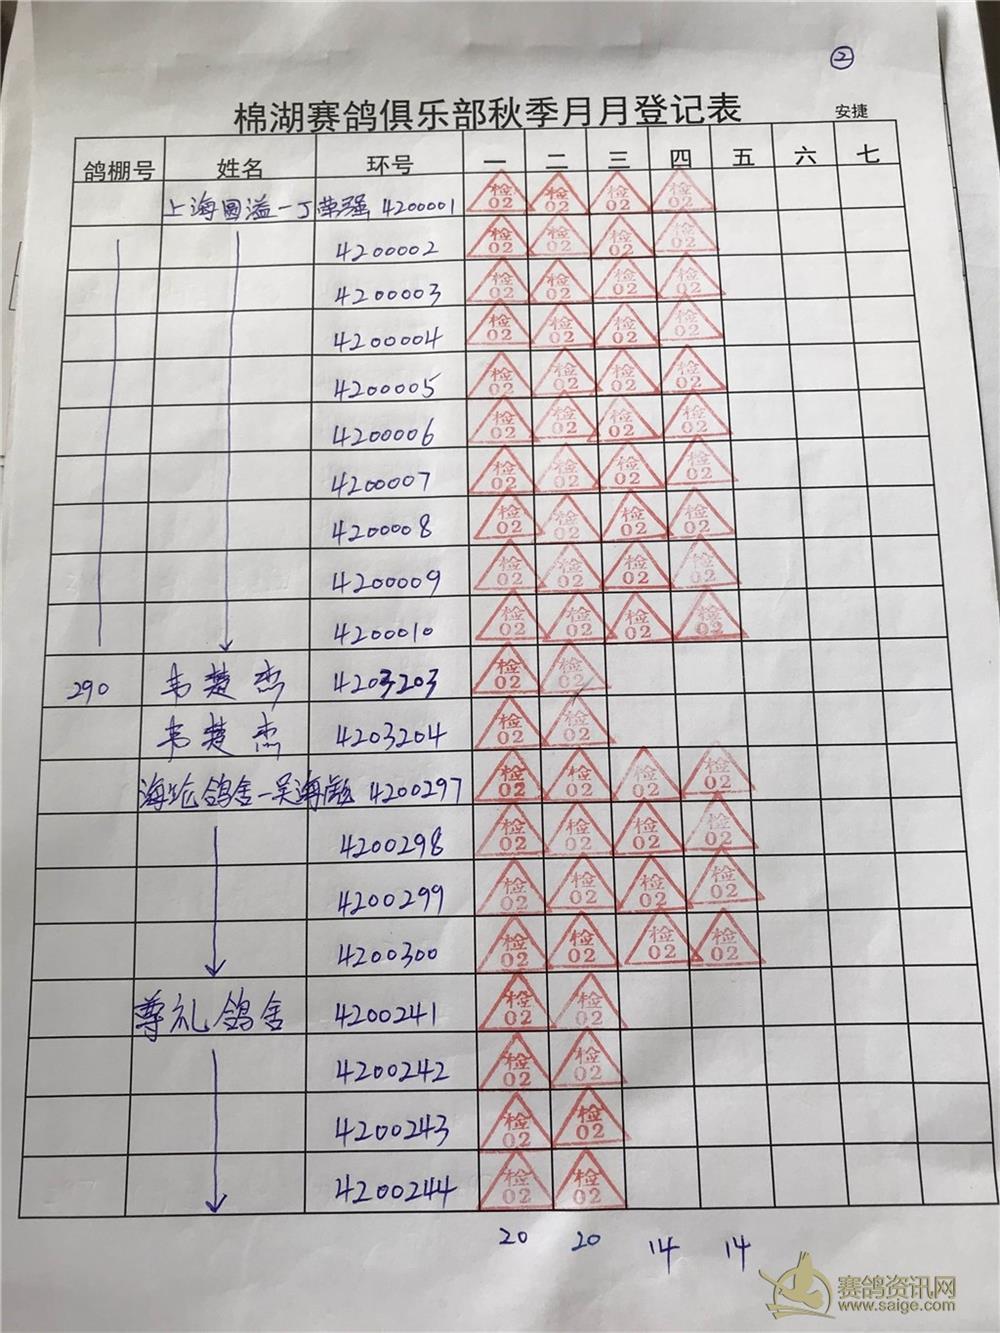 ②
棉湖赛鸽俱乐部秋季月月登记表
安捷
鸽棚号 姓名 环号 一 二 三 四 五 六 七
上海国溢一丁荣强 4200001 检02 检02 检02 检02
4200002 检02 检02 检02 检02
4200003 检02 检02 检02 检02
4200004 检02 检02 检02 检02
4200005 检02 检02 检02 检02
4200006 检02 检02 检02 检02
4200007 检02 检02 检02 检02
4200008 检02 检02 检02 检02
4200009 检02 检02 检02 检02
4200010 检02 检02 检02 检02
290 韦楚杰 4203203 检02 检02
韦楚杰 4203204 检02 检02
海沦鸽舍-吴海 4200297 检02 检02 检02 检02
4200298 检02 检02 检02 检02
4200299 检02 检02 检02 检02
4200300 检02 检02 检02 检02
尊礼鸽舍 4200241 检02 检02
4200242 检02 检02
4200243 检02 检02
4200244 检02 检02
20 20 14 14
赛鸽资讯网
www.saige.com